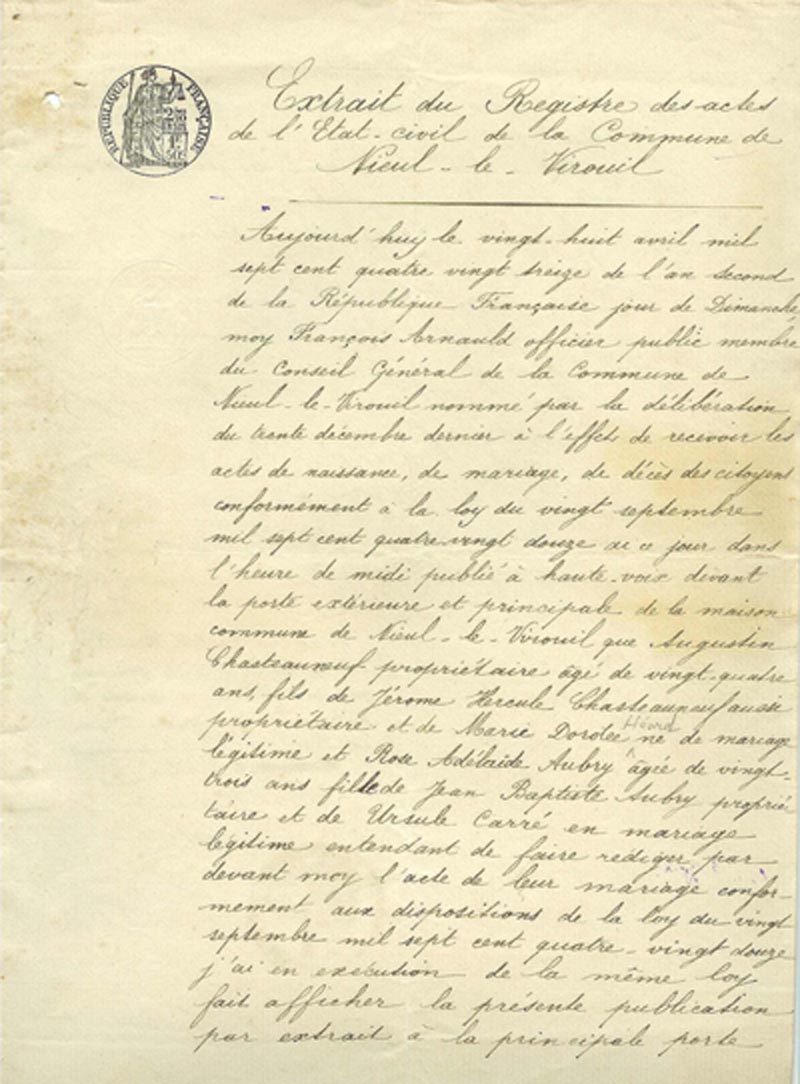 RÉPUBLIQUE FRANÇAISE
Extrait du Registre des actes
de l'Etat-civil de la Commune de
Nieul-le-Virouil
Aujourd'huy le vingt-huit avril mil
sept cent quatre vingt treize de l'an second
de la République Française jour de Dimanche,
moy François Arnauld officier public membre
du Conseil Général de la Commune de
Nieul-le-Virouil nommé par la délibération
du trente décembre dernier à l'effet de recevoir les
actes de naissance, de mariage, de décès des citoyens
conformément à la loy du vingt septembre
mil sept cent quatre-vingt douze ai ce jour dans
l'heure de midi publié à haute-voix devant
la porte extérieure et principale de la maison
commune de Nieul-le-Virouil que Augustin
Chasteauneuf propriétaire âgé de vingt-quatre
ans, fils de Jérome Hercule Chasteauneuf aussi
propriétaire et de Marie Dorotée Héard né de mariage
légitime et Rose Adélaïde Aubry âgée de vingt-
trois ans fille de Jean Baptiste Aubry proprié
taire et de Ursule Carré en mariage
légitime entendant de faire rédiger par
devant moy l'acte de leur mariage confor-
mement aux dispositions de la loy du vingt
septembre mil sept cent quatre-vingt douze
j'ai en exécution de la même loy
fait afficher la présente publication
par extrait à la principale porte